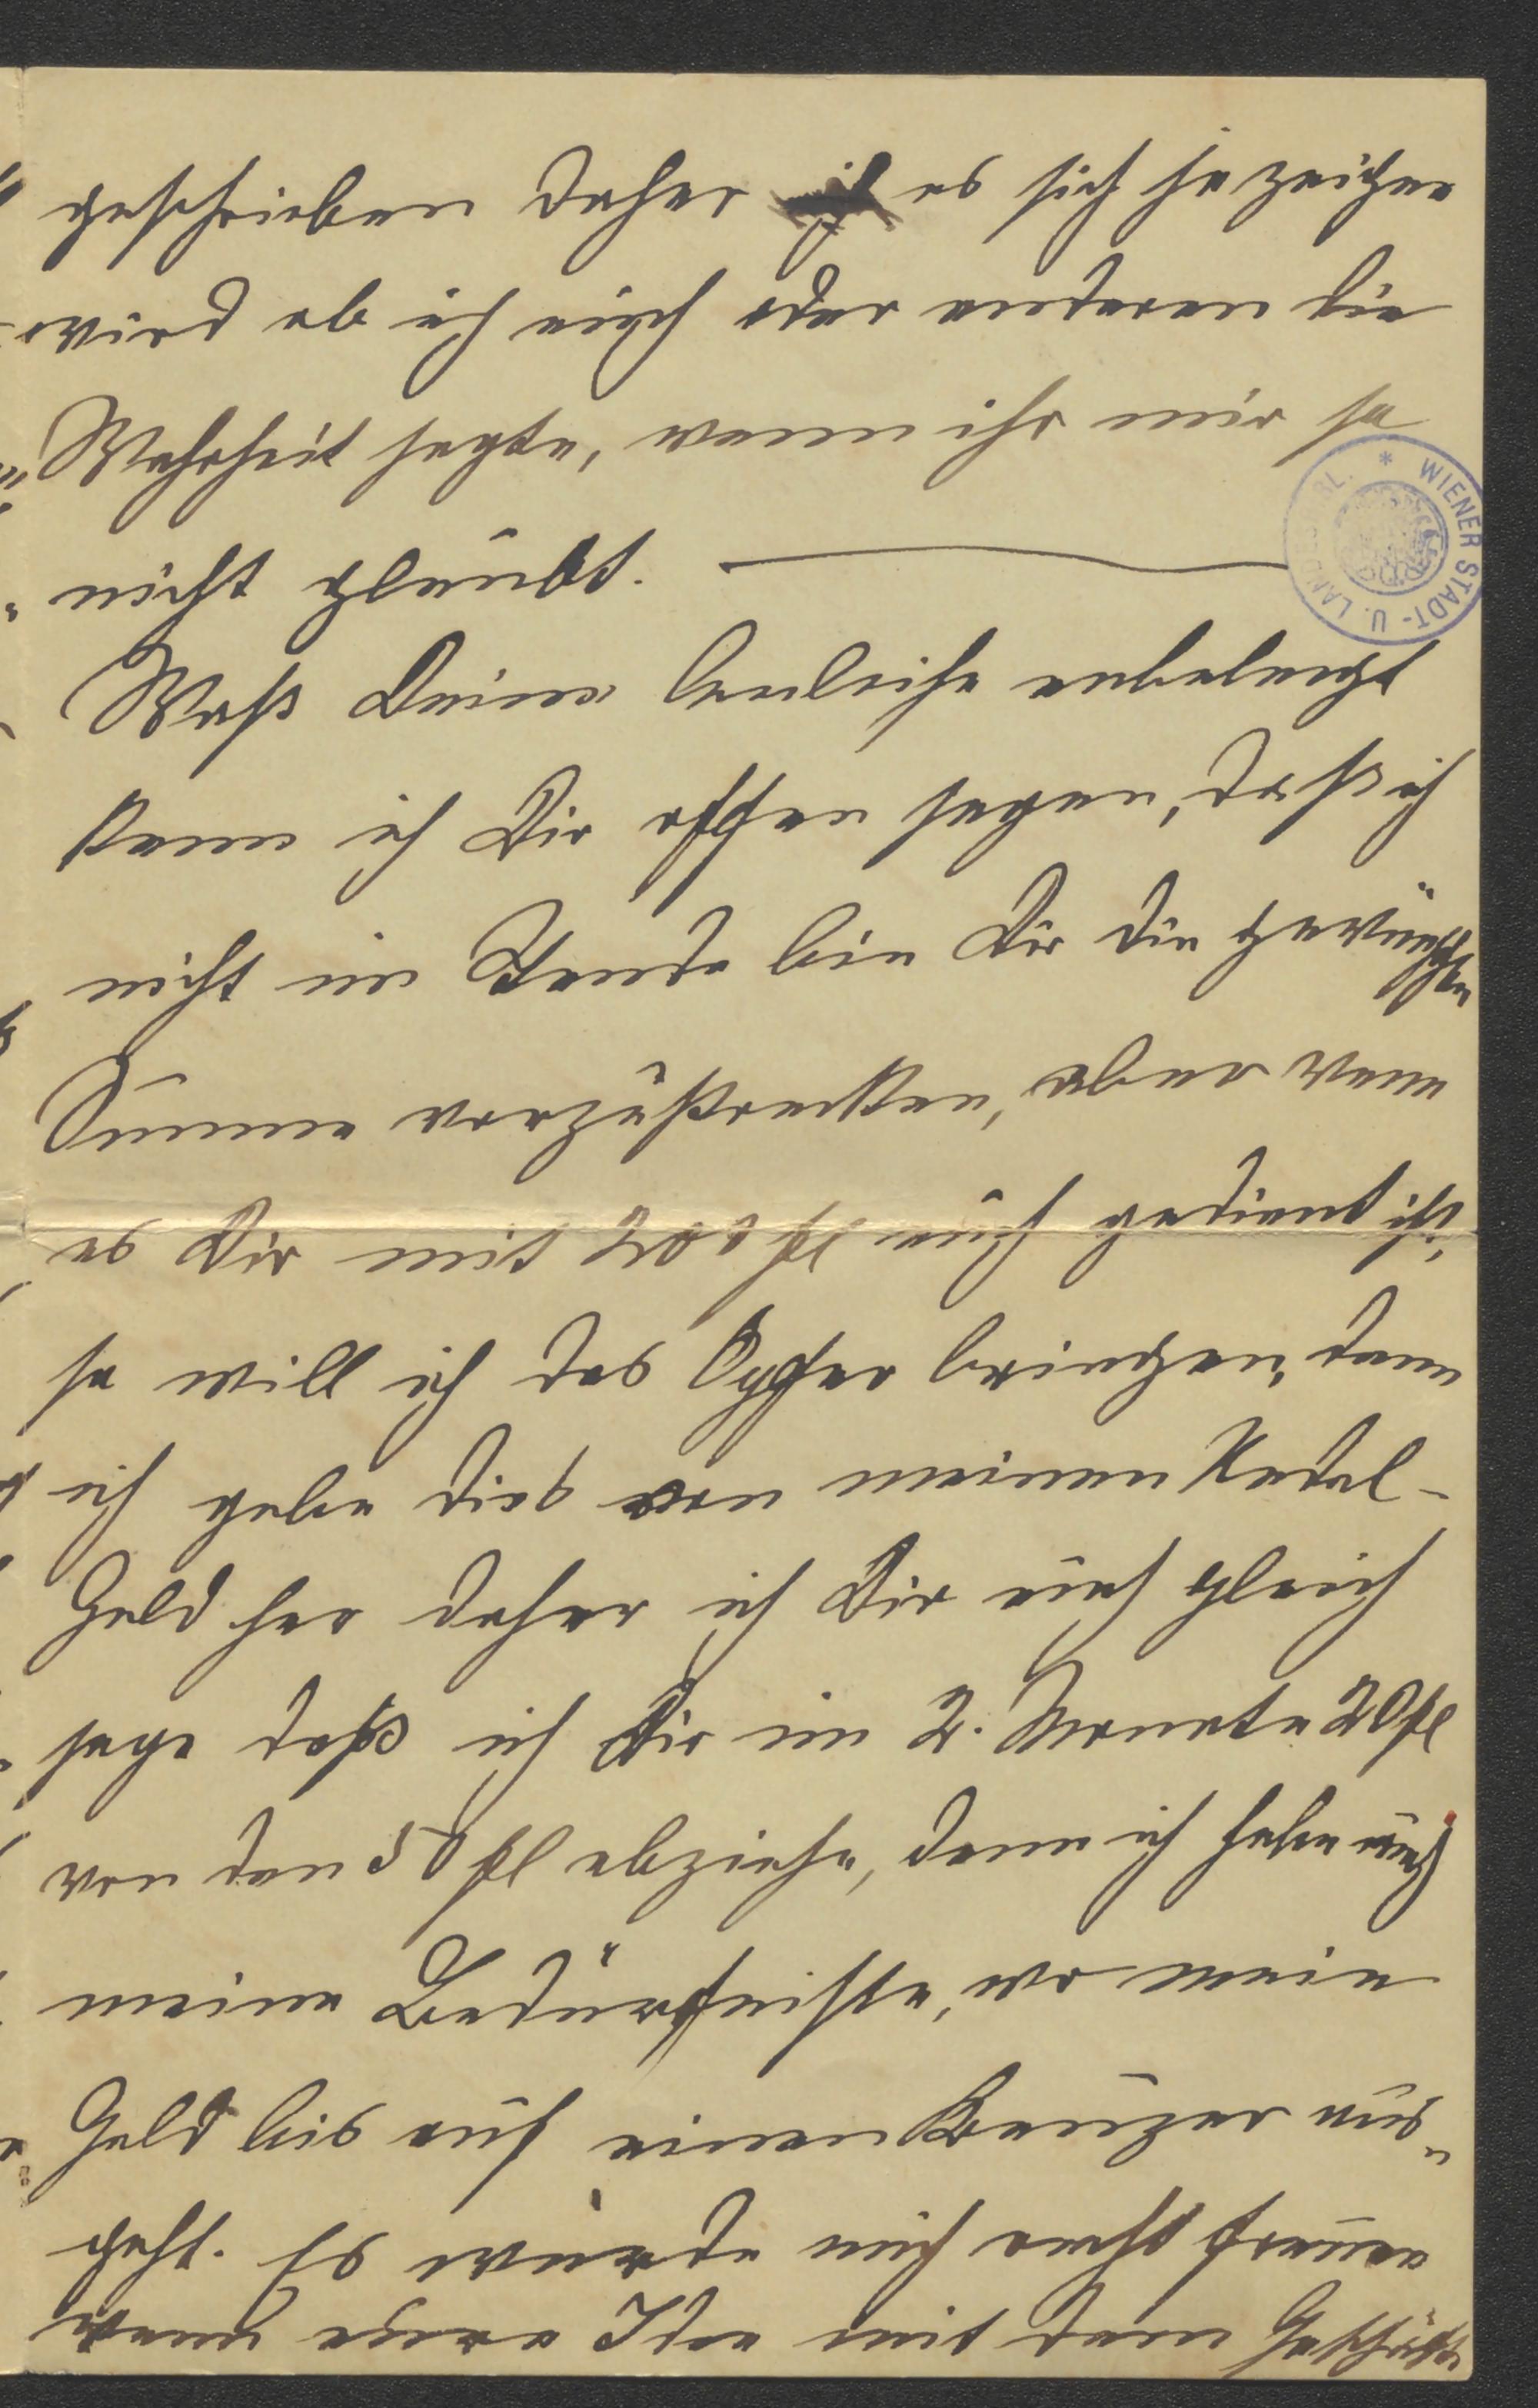 geschrieben daher es sich ja zeigen
wird ob ich euch oder anderen die
Wahrheit sagte, wenn ihr mir ja
nicht glaubt.
WIENER STADT- U. LANDESBIBL.
Waß Deine Anleihe anbelangt
kann ich Dir offen sagen, daß ich
nicht im Stande bin Dir die gewünschten
Summe vorzustrecken, aber wenn
es Dir mit 200 fl auch gedient ist,
so will ich das Opfer bringen, denn
ich gebe dies von meinen Nadel-
Geld her daher ich Dir auch gleich
sage daß ich Dir im 2. Monate 20 fl
von den 50 fl abziehe, denn ich habe auch
meine Bedürfnisse, wo mein
Geld bis auf einen Kreuzer aus-
geht. Es würde mich recht freuen
wenn eure Idee mit dem Geschäfte